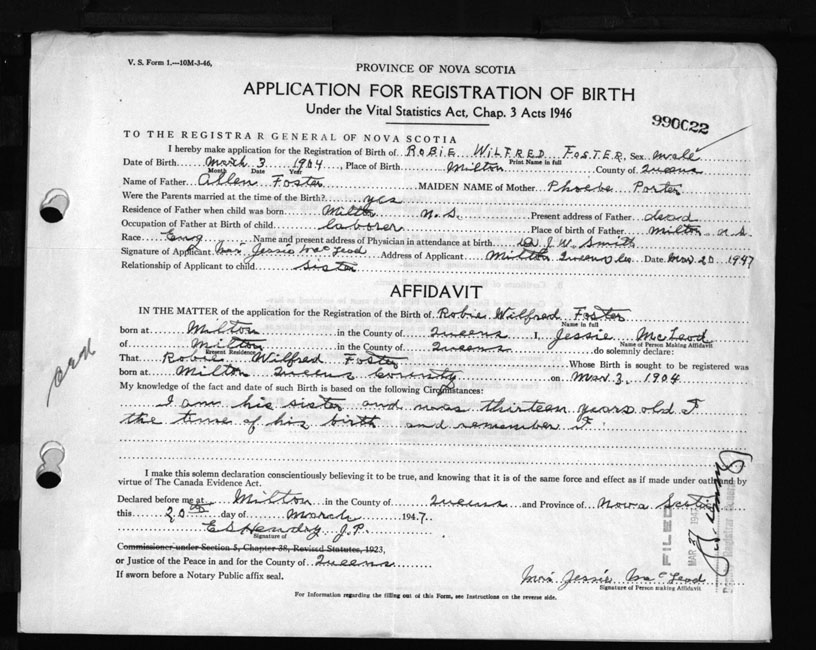 V. S. Form 1.—10M-3-46,
PROVINCE OF NOVA SCOTIA
APPLICATION FOR REGISTRATION OF BIRTH
Under the Vital Statistics Act, Chap. 3 Acts 1946
990022
TO THE REGISTRAR GENERAL OF NOVA SCOTIA
I hereby make application for the Registration of Birth of ROBIE WILFRED FOSTER, Sex male
Print Name in full
Date of Birth March 3 1904, Place of Birth Milton County of Queens
Month Date Year
Name of Father Allen Foster MAIDEN NAME of Mother Phoebe Porter
Were the Parents married at the time of the Birth? yes
Residence of Father when child was born Milton N.S. Present address of Father dead
Occupation of Father at Birth of child laborer Place of birth of Father Milton N.S.
Race Eng Name and present address of Physician in attendance at birth Dr J. W. Smith
Signature of Applicant Mrs. Jessie MacLeod Address of Applicant Milton Queens Co Date Mar 20 1947
Relationship of Applicant to child sister
AFFIDAVIT
IN THE MATTER of the application for the Registration of the Birth of Robie Wilfred Foster
Name in full
born at Milton in the County of Queens I, Jessie McLeod
Name of Person Making Affidavit
of Milton in the County of Queens do solemnly declare:
Present Residence
That Robie Wilfred Foster Whose Birth is sought to be registered was
born at Milton Queens County on Mar 3, 1904
My knowledge of the fact and date of such Birth is based on the following Circumstances:
I am his sister and was thirteen years old at
the time of his birth and remember it
I make this solemn declaration conscientiously believing it to be true, and knowing that it is of the same force and effect as if made under oath and by
virtue of The Canada Evidence Act.
Declared before me at Milton in the County of Queens and Province of Nova Scotia
this 20th day of March 1947.
E S Hendry J.P.
Signature of
Commissioner under Section 5, Chapter 38, Revised Statutes, 1923,
or Justice of the Peace in and for the County of Queens
If sworn before a Notary Public affix seal.
Mrs Jessie MacLeod
Signature of Person making Affidavit
For Information regarding the filling out of this Form, see Instructions on the reverse side.
FILED
MAR 27 194